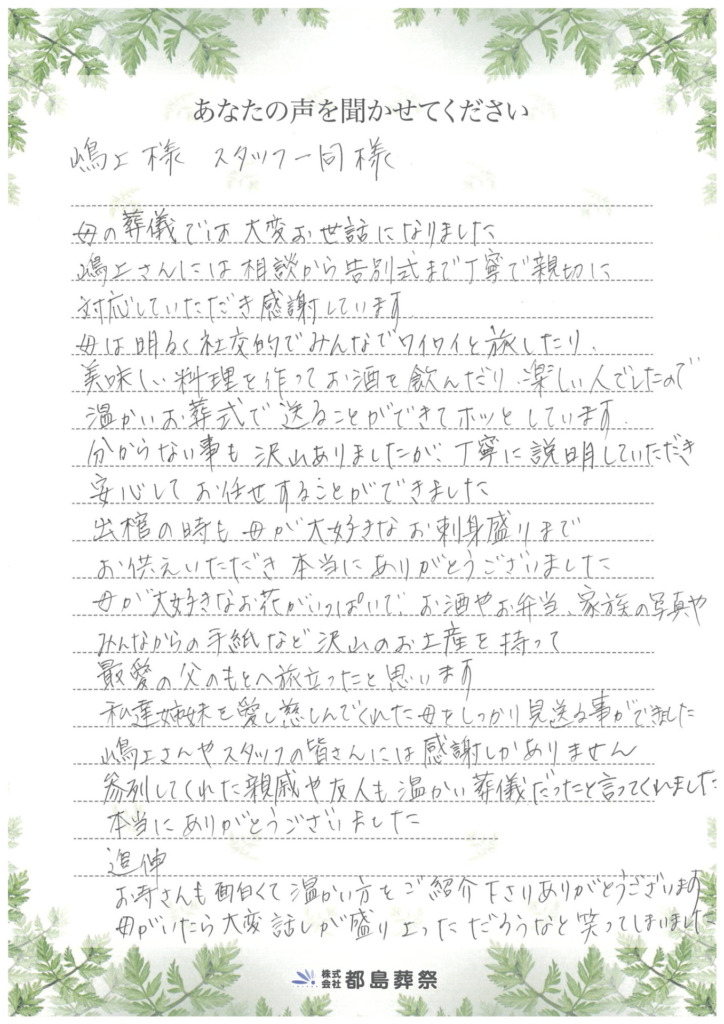 あなたの声を聞かせてください
嶋上様 スタッフ一同様
母の葬儀では大変お世話になりました
嶋上さんには相談から告別式まで丁寧で親切に
対応していただき感謝しています
母は明るく社交的でみんなでワイワイと旅したり、
美味しい料理を作ってお酒を飲んだり、楽しい人でしたので
温かいお葬式で送ることができてホッとしています.
分からない事も沢山ありましたが、丁寧に説明していただき
安心してお任せすることができました
出棺の時も母が大好きなお刺身盛りまで
お供えいただき本当にありがとうございました
母が大好きなお花がいっぱいで、お酒やお弁当、家族の写真や
みんなからの手紙など沢山のお土産を持って
最愛の父のもとへ旅立ったと思います
私達姉妹を愛し慈しんでくれた母をしっかり見送る事ができました
嶋上さんやスタッフの皆さんには感謝しかありません
参列してくれた親戚や友人も温かい葬儀だったと言ってくれました
本当にありがとうございました
追伸
お寺さんも面白くて温かい方をご紹介下さりありがとうございます
母がいたら大変話しが盛り上っただろうなと笑ってしまいました
株式会社 都島葬祭